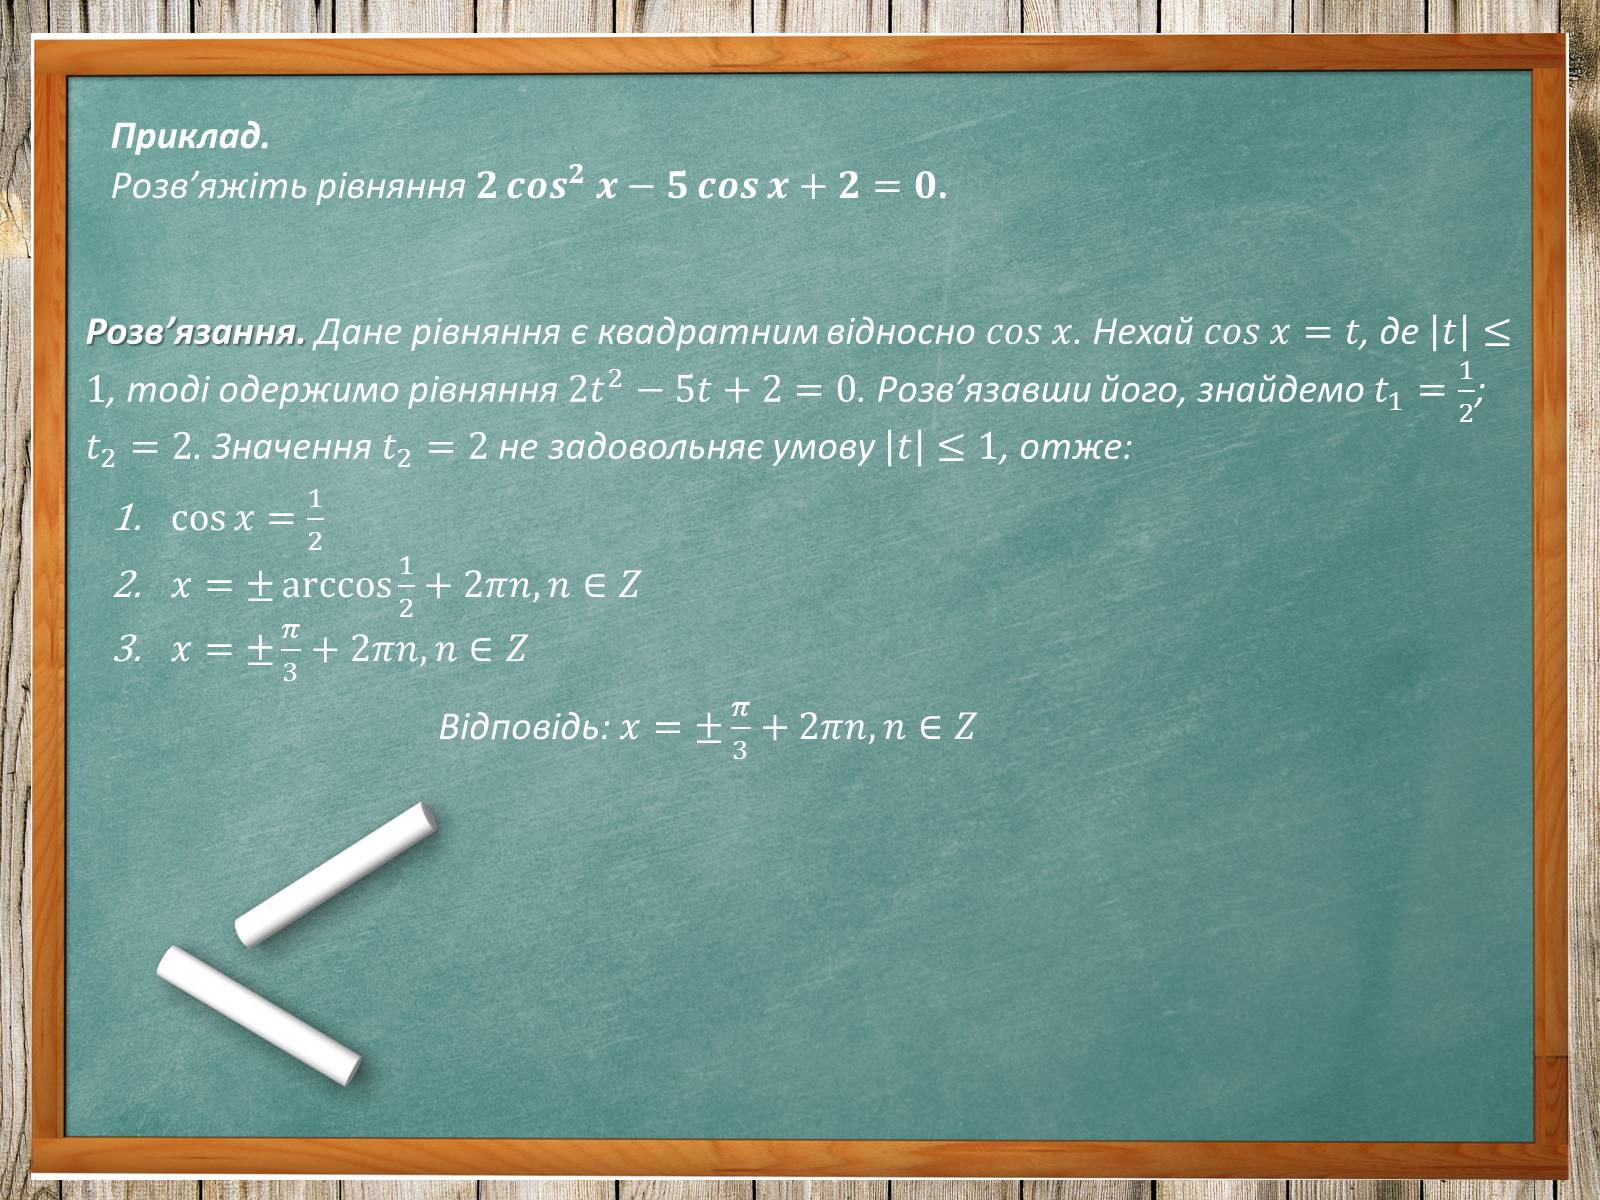 Приклад.
Розв’яжіть рівняння 2 cos² x − 5 cos x + 2 = 0.
Розв’язання. Дане рівняння є квадратним відносно cos x. Нехай cos x = t, де |t| ≤
1, тоді одержимо рівняння 2t² − 5t + 2 = 0. Розв’язавши його, знайдемо t₁ = 1/2;
t₂ = 2. Значення t₂ = 2 не задовольняє умову |t| ≤ 1, отже:
1. cos x = 1/2
2. x = ± arccos 1/2 + 2πn, n ∈ Z
3. x = ± π/3 + 2πn, n ∈ Z
Відповідь: x = ± π/3 + 2πn, n ∈ Z